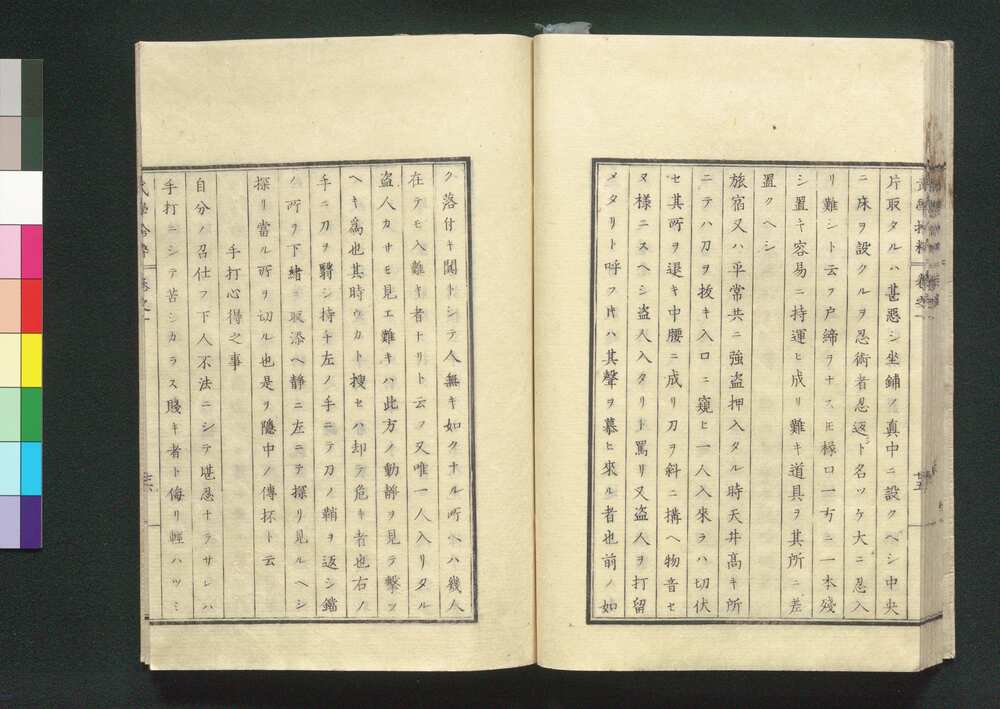 片取タルハ甚悪シ坐鋪ノ真中ニ設クヘシ中央
ニ床ヲ設クルヲ忍術者忍返シト名ツケ大ニ忍入
リ難シト云フ戸締ヲナスモ椽口一方ニ一本残
シ置キ容易ニ持運ヒ成リ難キ道具ヲ其所ニ差
置クヘシ
旅宿又ハ平常共ニ強盗押入タル時天井高キ所
ニテハ刀ヲ抜キ入口ニ窺ヒ一人入來ラハ切伏
セ其所ヲ退キ中腰ニ成リ刀ヲ斜ニ搆ヘ物音セ
ヌ様ニスヘシ盗人入タリト罵リ又盗人ヲ打留
メタリト呼フ片ハ其聲ヲ慕ヒ來ル者也前ノ如
ク落付キ闃トシテ人無キ如クナル所ヘハ幾人
在テモ入難キ者ナリト云フ又唯一人入リタル
盗人カサモ見エ難キハ此方ノ動静ヲ見テ撃ツ
ヘキ為也其時ウカト捜セハ却テ危キ者也右ノ
手ニ刀ヲ翳シ持チ左ノ手ニテ刀ノ鞘ヲ返シ鐺
ノ所ヲ下緒ニ取添ヘ静ニ左ニテ探リ見ルヘシ
探リ當ル所ヲ切ル也是ヲ隠中ノ傳抔ト云
手打心得之事
自分ノ召仕フ下人不法ニシテ堪忍ナラサレハ
手打ニシテ苦シカラス賤キ者ト侮リ輕ハツミ